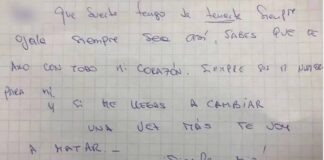 Que suerte tengo de tenerte siempre
Ojala siempre sea así, sabes que te
amo con todo mi corazón. Siempre
para mí.
Y si me llegas a cambiar
una vez más te voy
a matar -